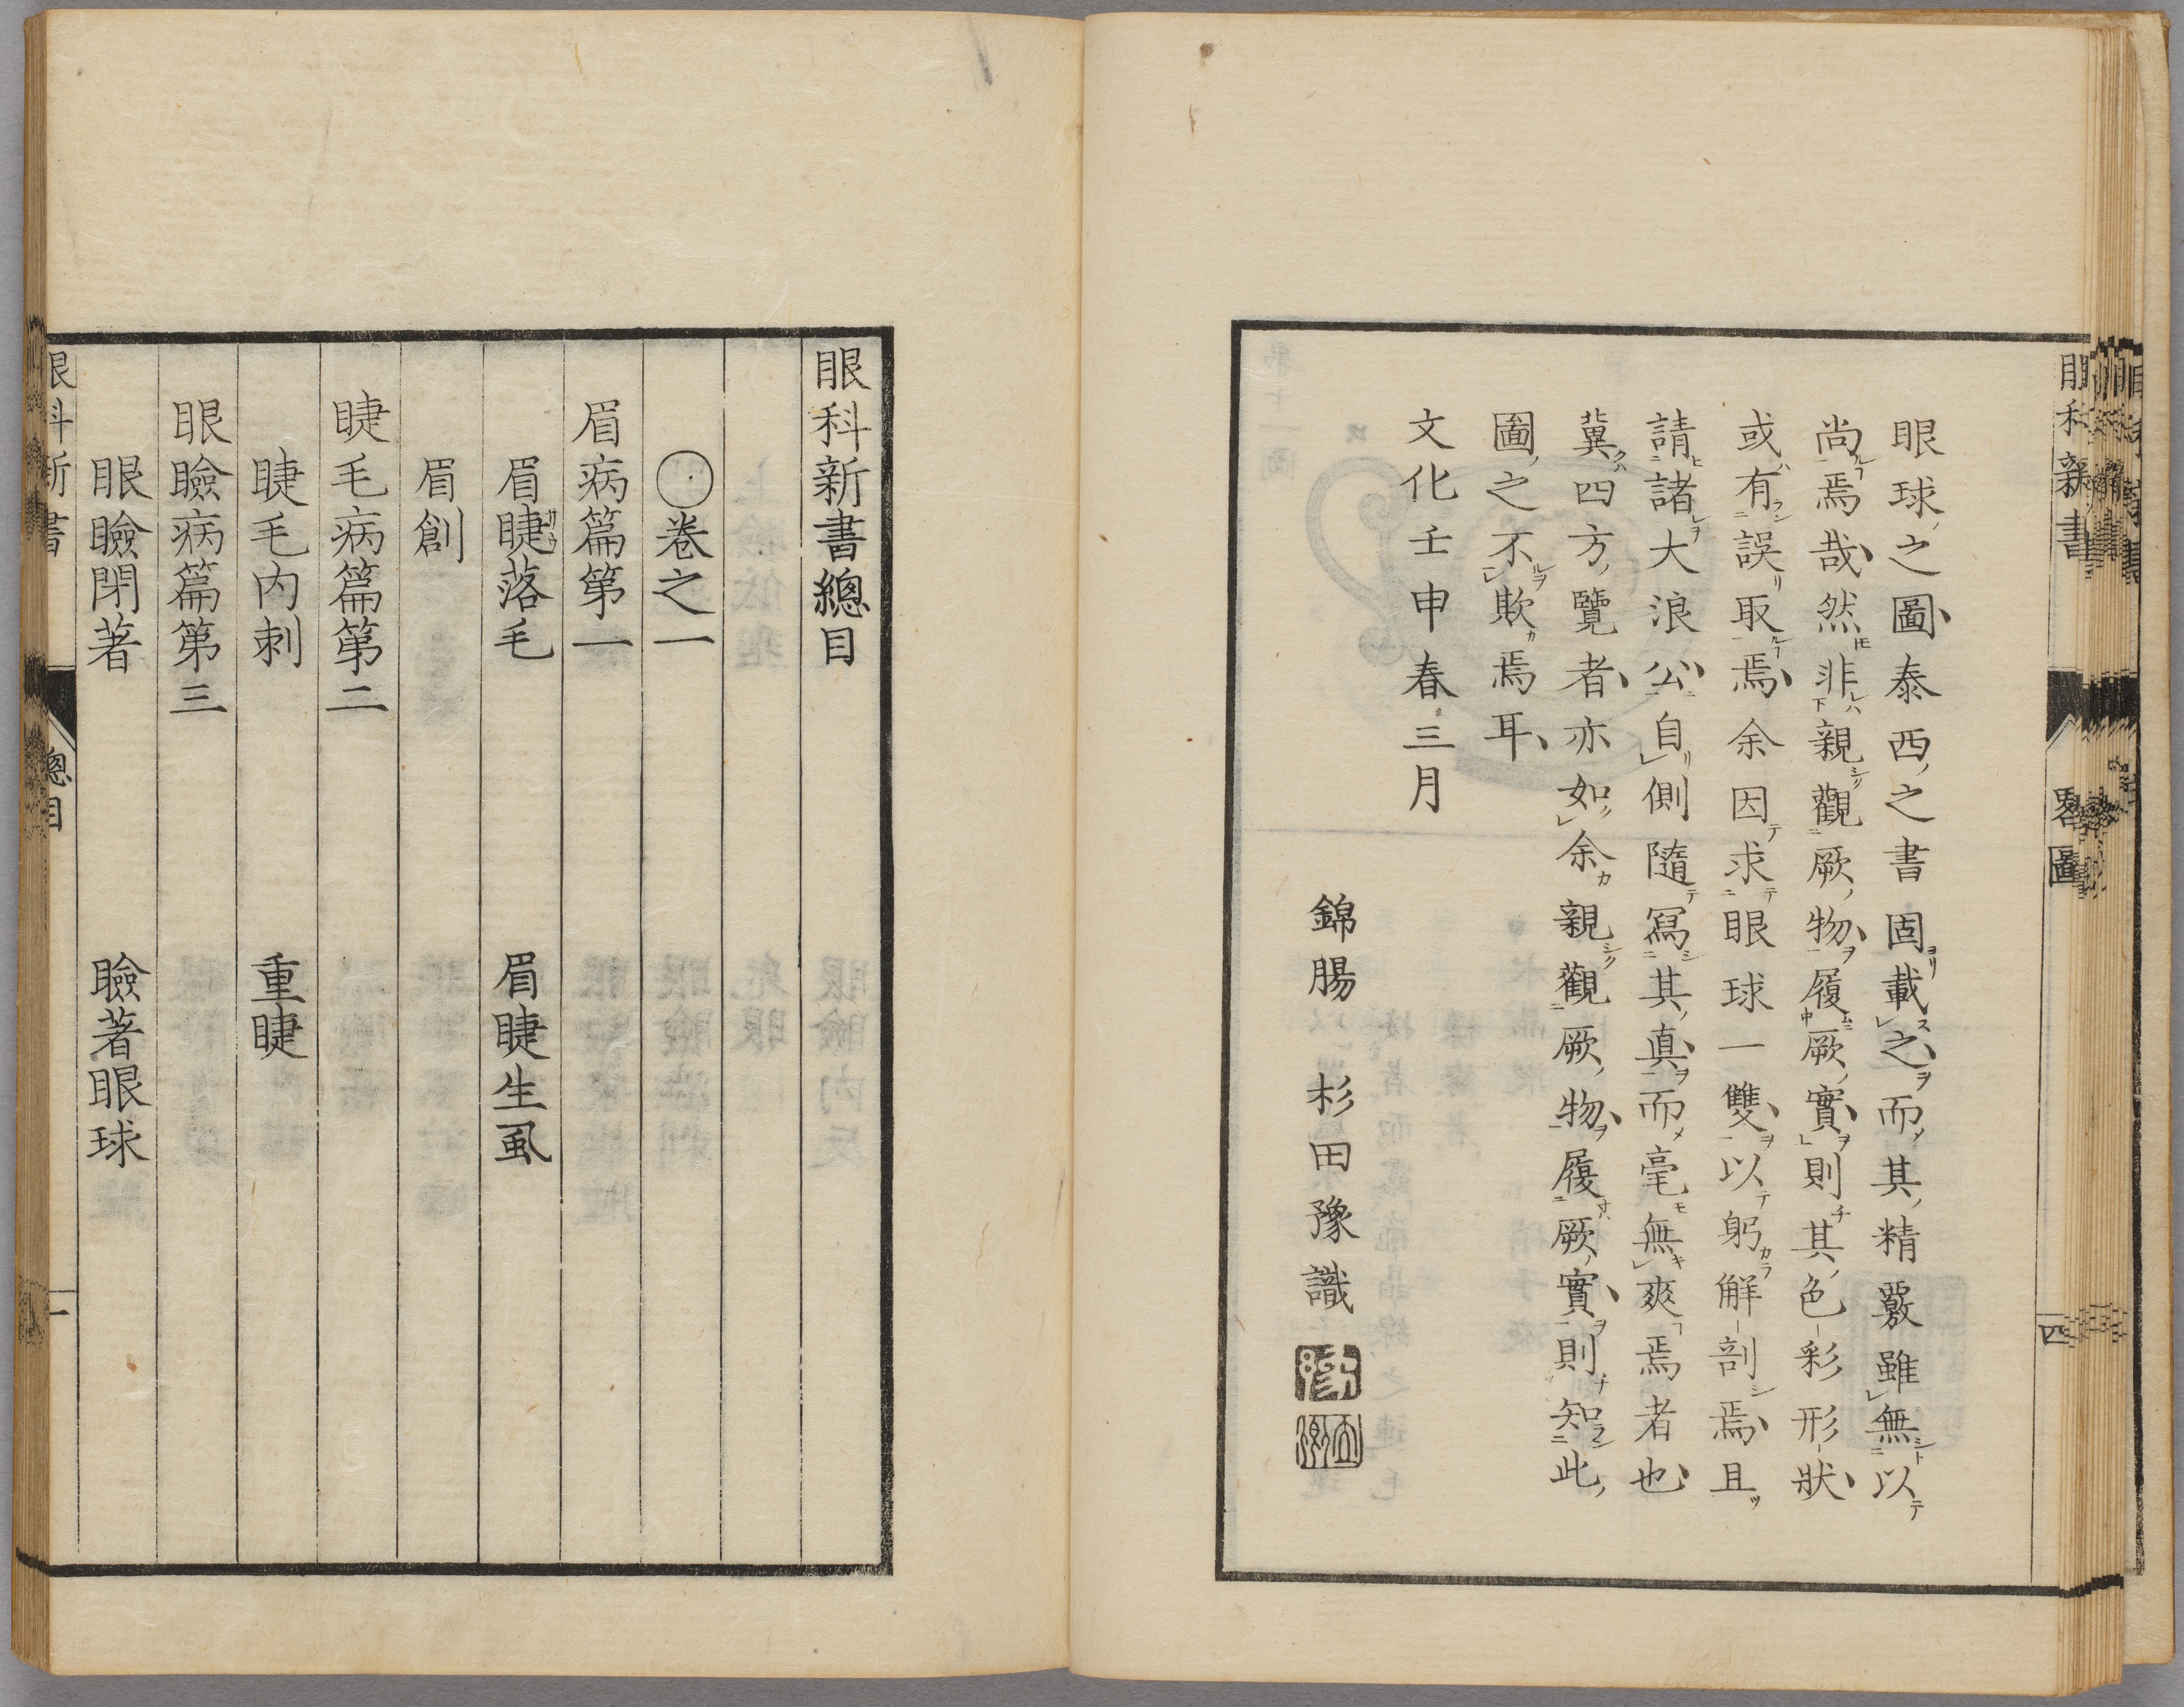 眼科新書
畧圖
四
眼球之圖泰西之書固載之而其精覈雖無以
尚焉哉然非親觀厥物履厥實則其色彩形狀
或有誤取焉余因求眼球一雙以躬解剖焉且
請諸大浪公自側隨寫其真而毫無爽焉者也
冀四方覽者亦如余親觀厥物履厥實則知此
圖之不欺焉耳
文化壬申春三月
錦腸 杉田豫識
眼科新書總目
○卷之一
眉病篇第一
眉睫落毛 眉睫生虱
眉創
睫毛病篇第二
睫毛內刺 重睫
眼瞼病篇第三
眼瞼閉著 瞼著眼球
眼科新書
總目
一